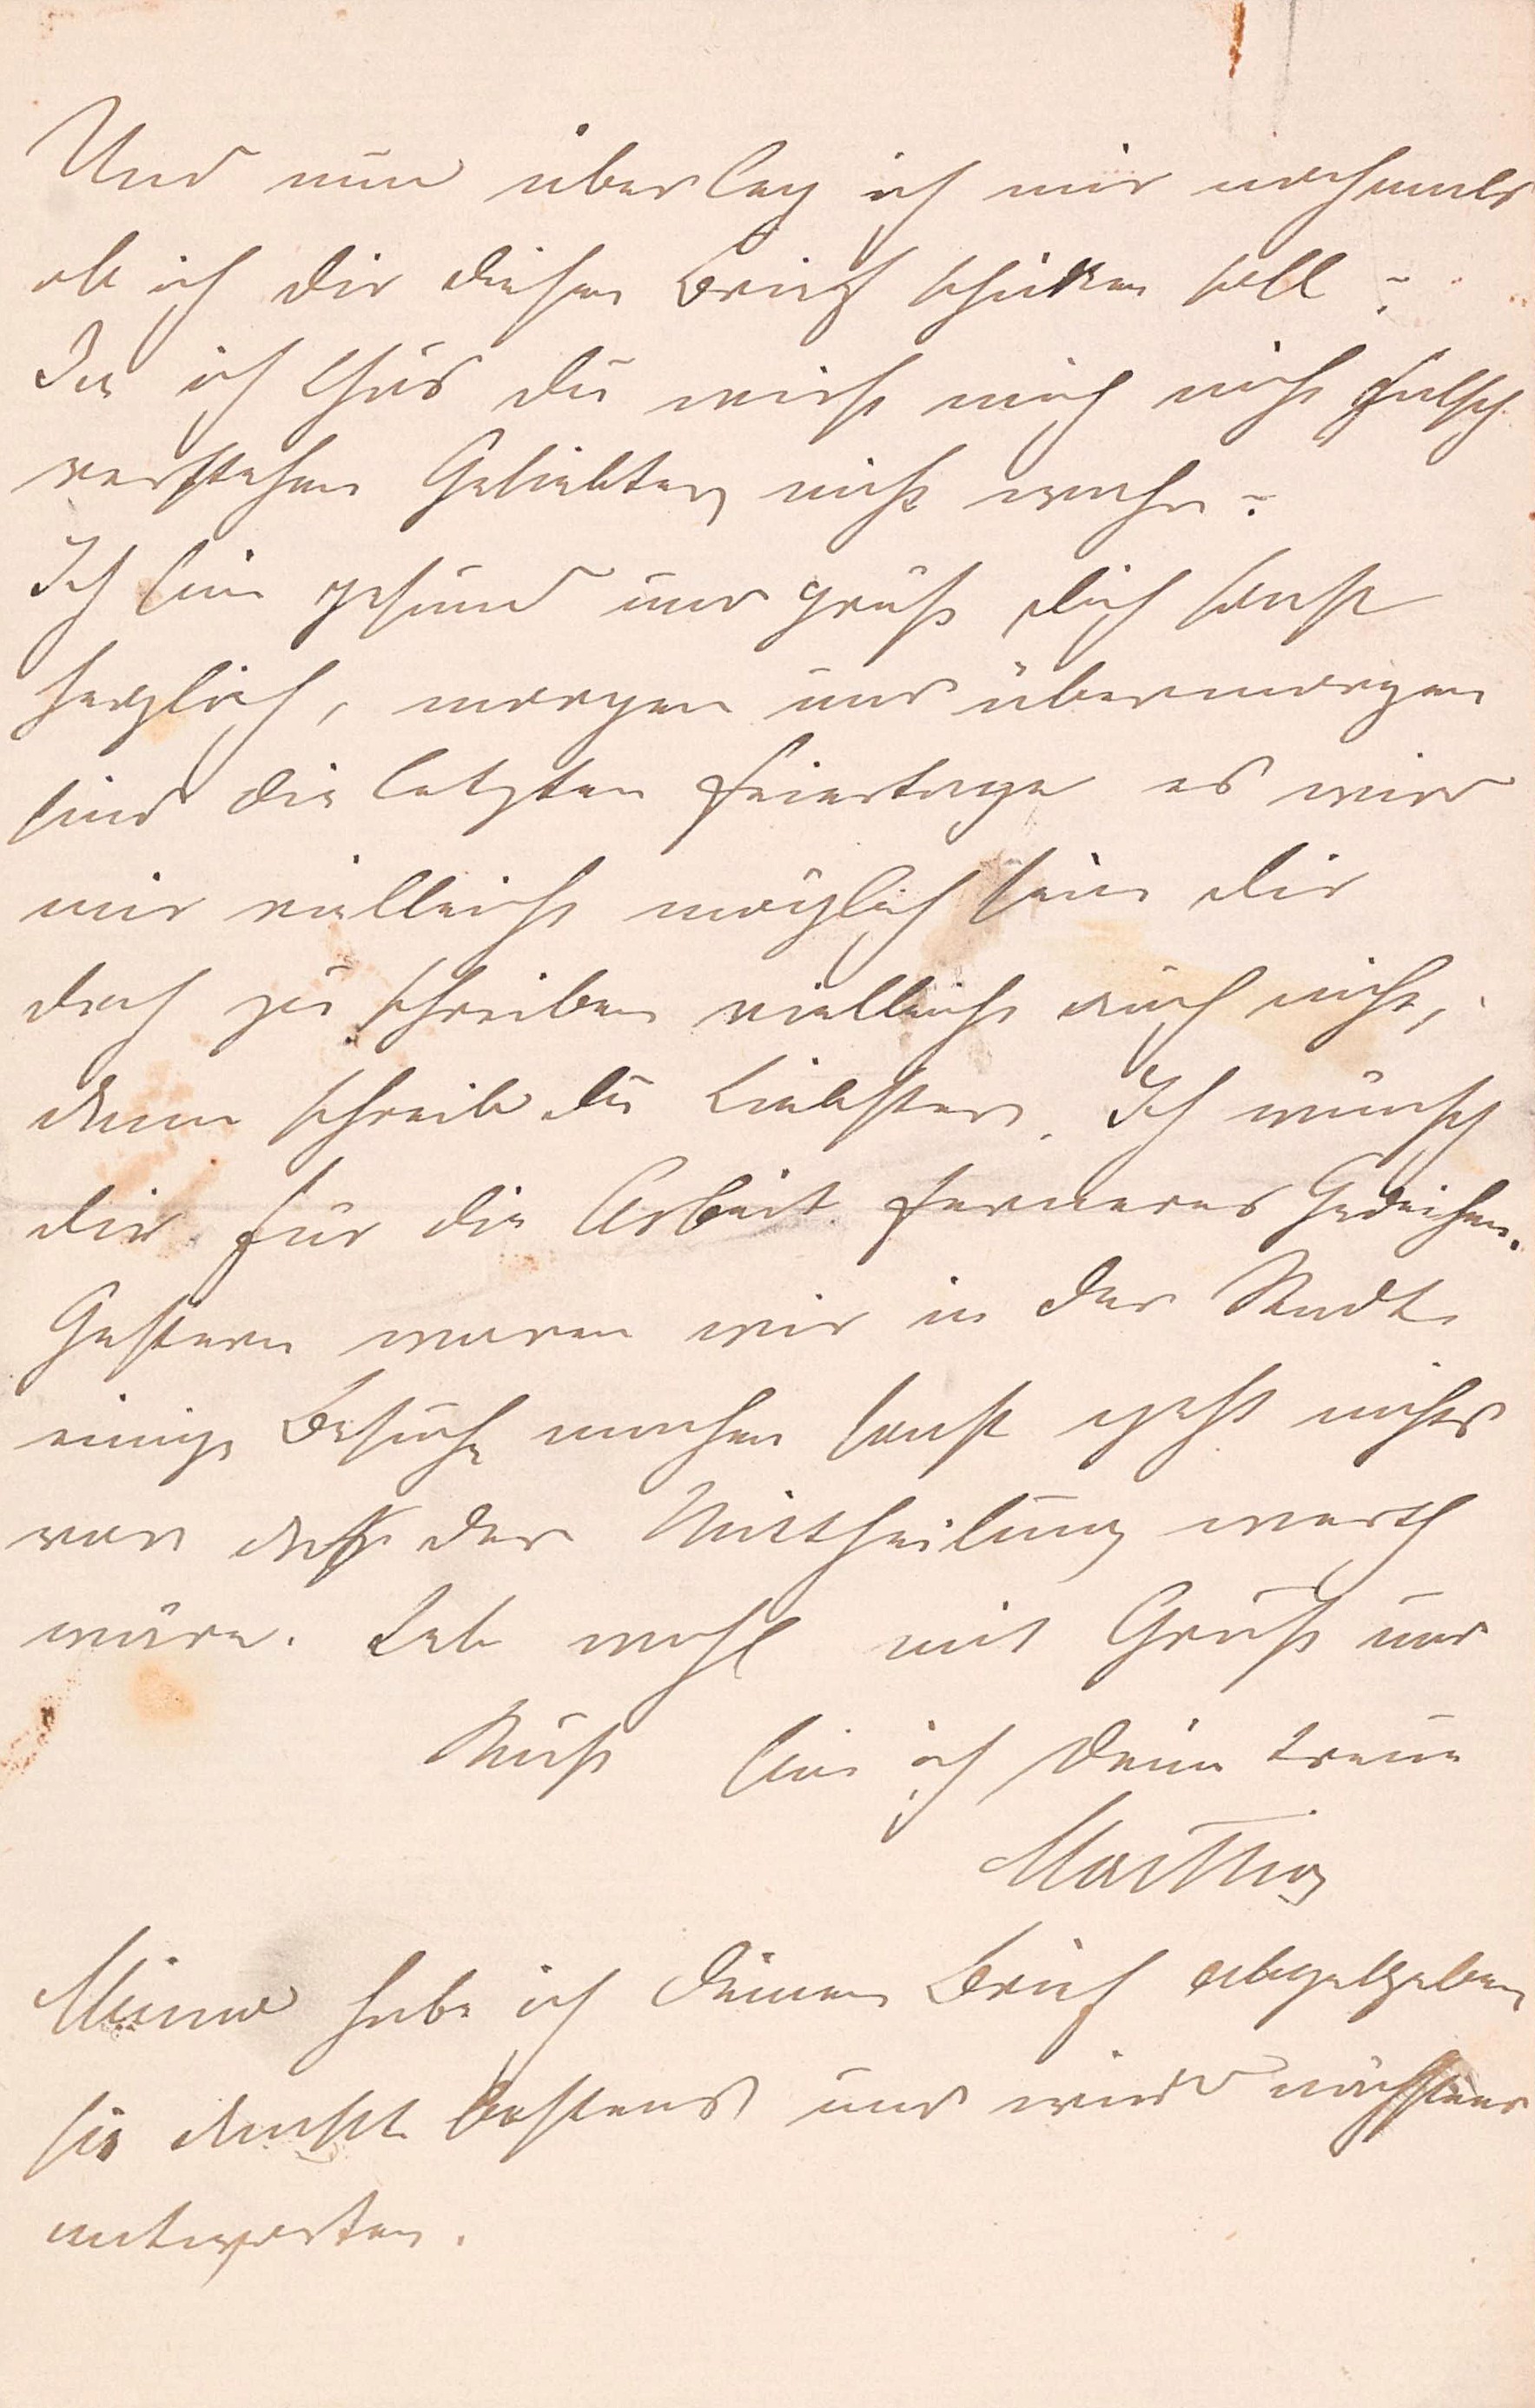 Und nun überleg ich mir nochmals
ob ich dir diesen Brief schicken soll?
Ja ich thus du wirst mich nicht falsch
verstehen Geliebter nicht wahr?
Ich bin gesund und grüß dich sonst
herzlich, morgen und übermorgen
sind die letzten Feiertage es wird
mir vielleicht möglich sein dir
doch zu schreiben vielleicht auch nicht,
dann schreib du Liebster. Ich wünsch
dir für die Arbeit ferneres Gedeihen.
Gestern waren wir in der Stadt
einige Besuche machen sonst geht nichts
vor daß der Mittheilung werth
wäre. Leb wohl mit Gruß und
Kuß bin ich deine treue
Martha
Minna habe ich deinen Brief abgegeben
sie dankt bestens und wird nächstens
antworten.